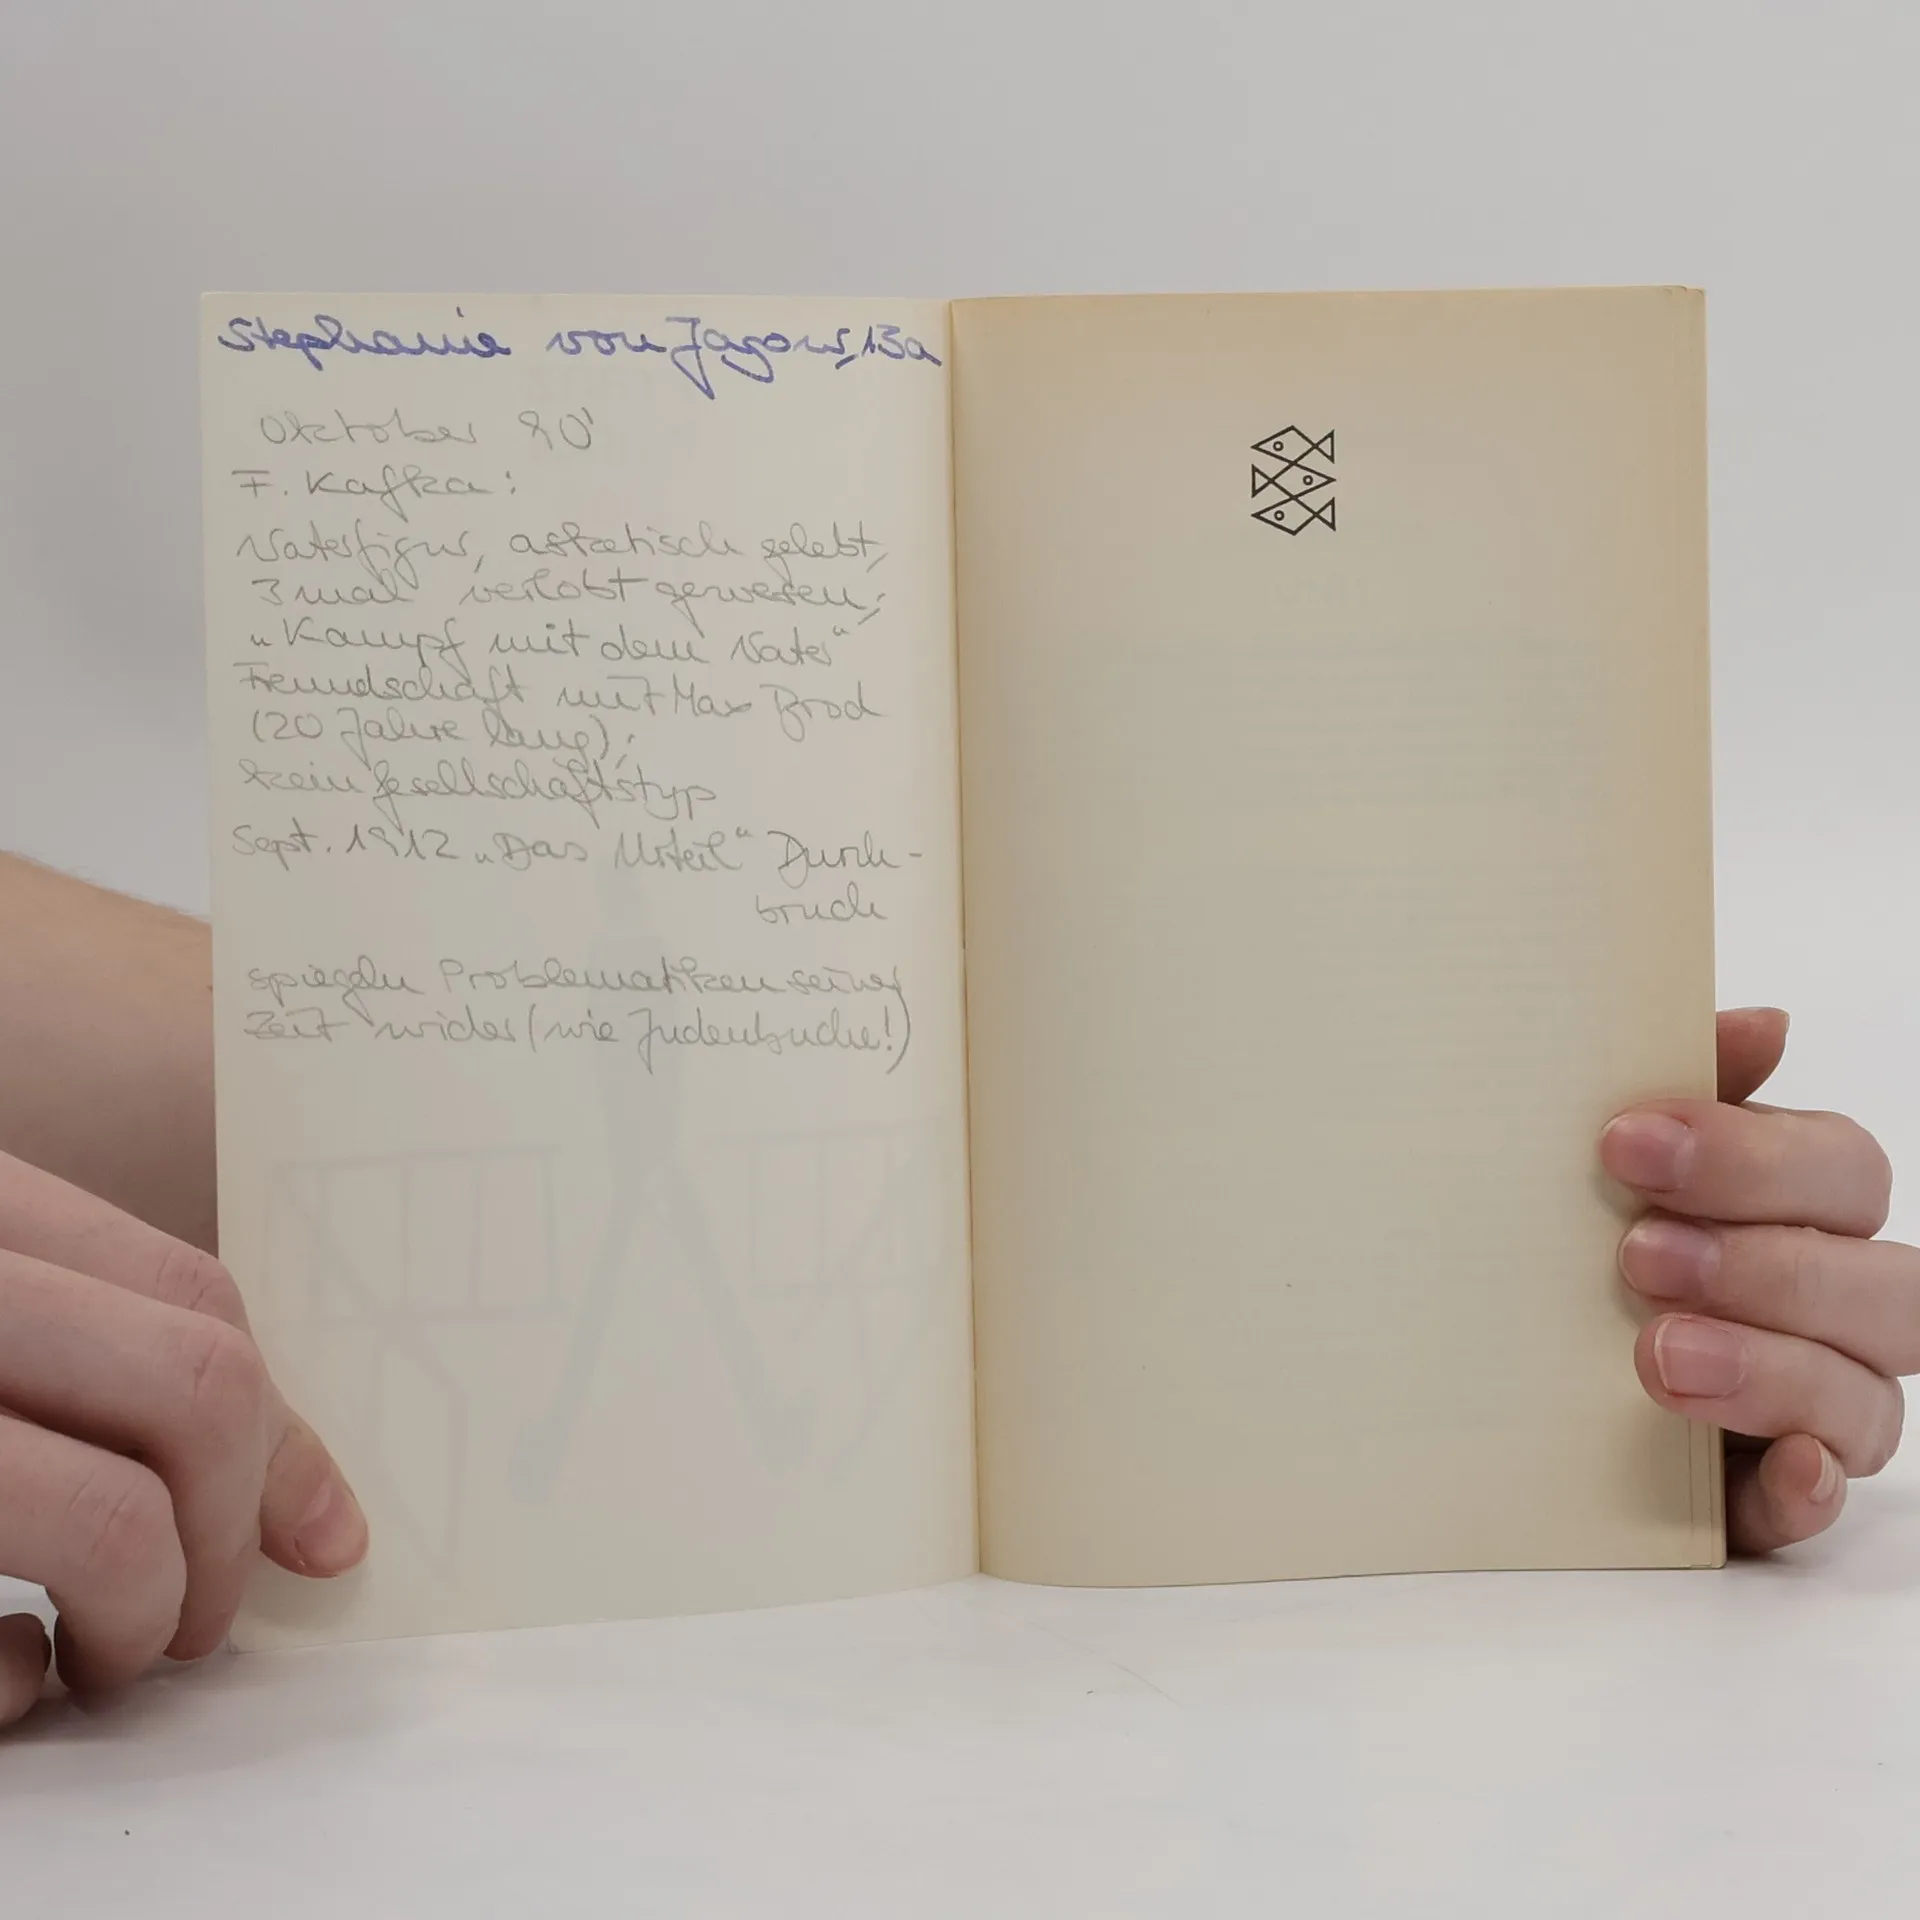 Stephanie von Jagow, 13a
Oktober 90'
F. Kafka:
Vaterfigur, asketisch gelebt,
3 mal verlobt gewesen;
„Kampf mit dem Vater“
Freundschaft mit Max Brod
(20 Jahre lang);
kein Gesellschaftstyp
Sept. 1912 „Das Urteil“ Durch-
bruch
spiegeln Problematiken seiner
Zeit wider (wie Judenbuche!)